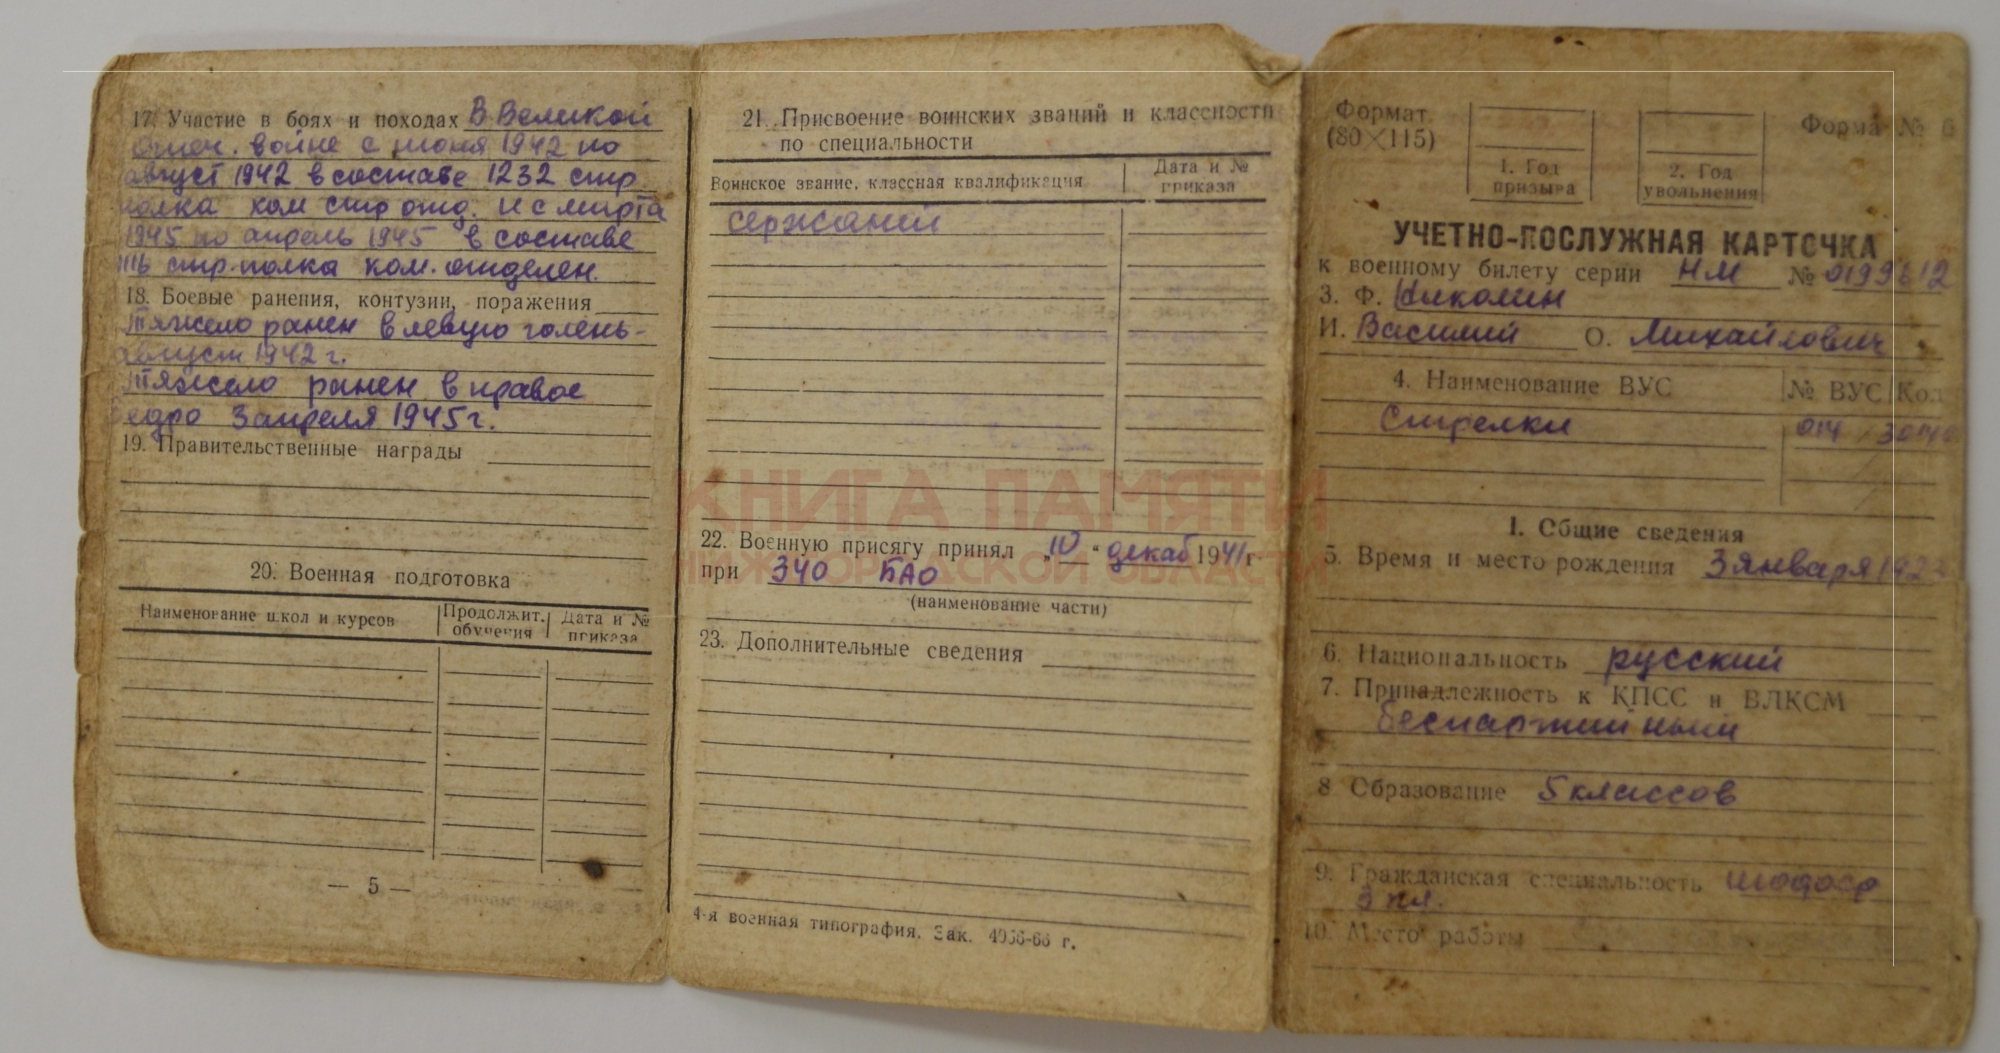 17. Участие в боях и походах В Великой
отеч. войне с июня 1942 по
август 1942 в составе 1232 стр.
полка ком стр отд. и с марта
1945 по апрель 1945 в составе
стр. полка ком. отделен.
18. Боевые ранения, контузии, поражения
Тяжело ранен в левую голень-
август 1942 г.
Тяжело ранен в правое
бедро 3 апреля 1945 г.
19. Правительственные награды
20. Военная подготовка
Наименование школ и курсов
Продолжит. обучения
Дата и № приказа
— 5 —
21. Присвоение воинских званий и классности
по специальности
Воинское звание, классная квалификация
Дата и № приказа
сержант
КНИГА ПАМЯТИ
НИЖЕГОРОДСКОЙ ОБЛАСТИ
22. Военную присягу принял „10“ декаб 1941 г
при 340 БАО
(наименование части)
23. Дополнительные сведения
4-я военная типография. Зак.
Формат
(80×115)
1. Год
призыва
2. Год
увольнения
Форма № 6
УЧЕТНО-ПОСЛУЖНАЯ КАРТОЧКА
к военному билету серии НМ №
3. Ф. Николин
И. Василий О. Михайлович
4. Наименование ВУС № ВУС Код
Стрелки 014
I. Общие сведения
5. Время и место рождения 3 января
6. Национальность русский
7. Принадлежность к КПСС и ВЛКСМ
беспартийный
8 Образование 5 классов
9. Гражданская специальность шофер
3 кл.
10. Место работы